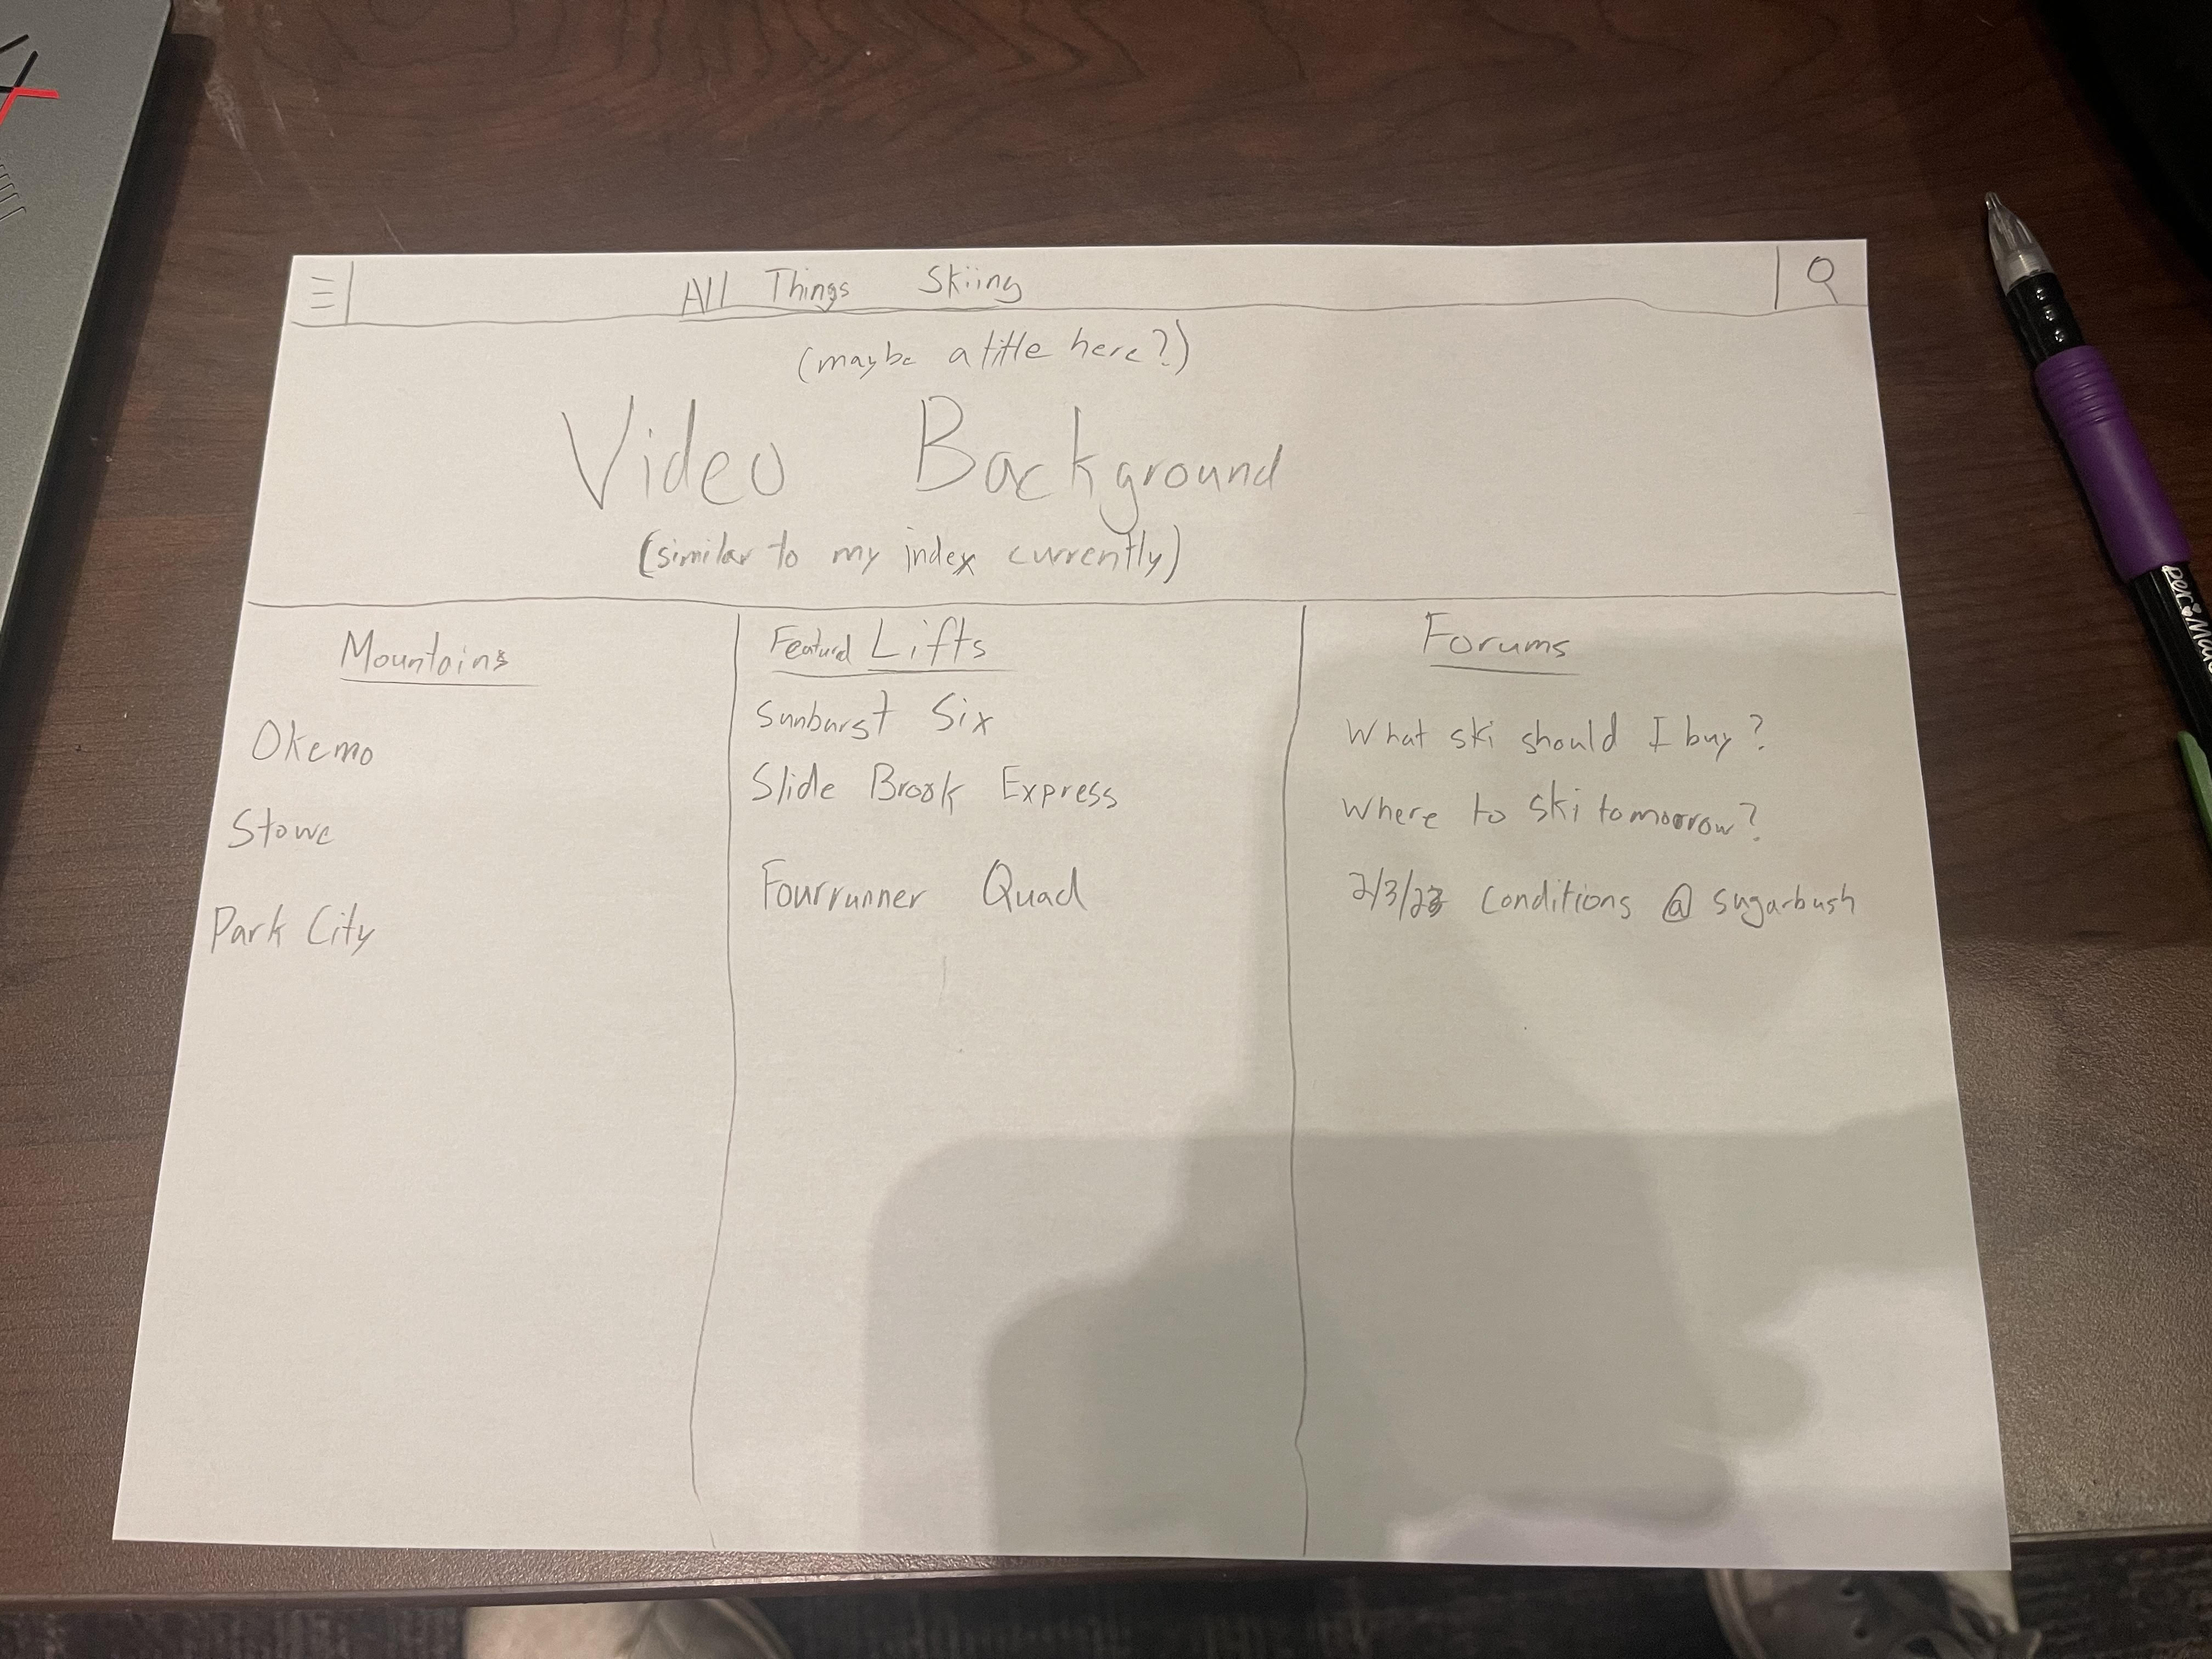 All Things Skiing
(maybe a title here?)
Video Background
(similar to my index currently)
Mountains
Okemo
Stowe
Park City
Featured Lifts
Sunburst Six
Slide Brook Express
Fourrunner Quad
Forums
What ski should I buy?
Where to ski tomorrow?
2/3/23 Conditions @ sugarbush